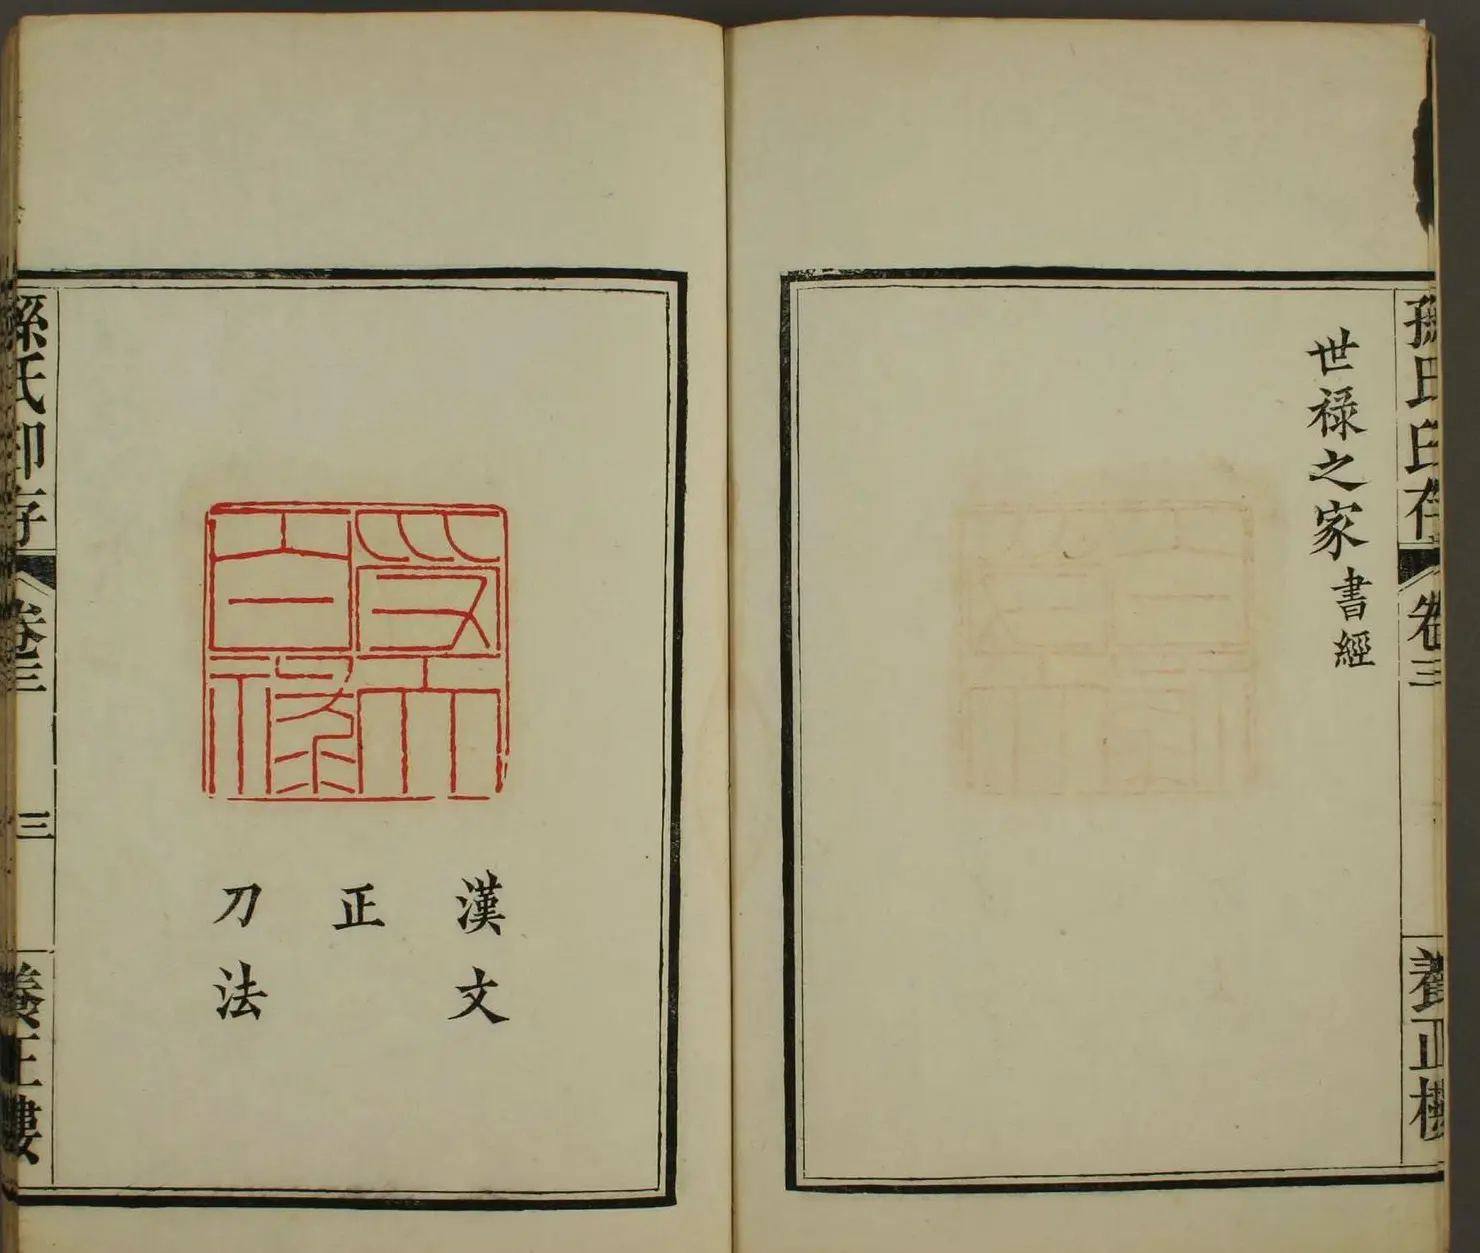 孫氏印存 卷三 養正樓
世禄之家 書經
受天
百祿
漢文
正
刀法
孫氏印存 卷三 三 養正樓